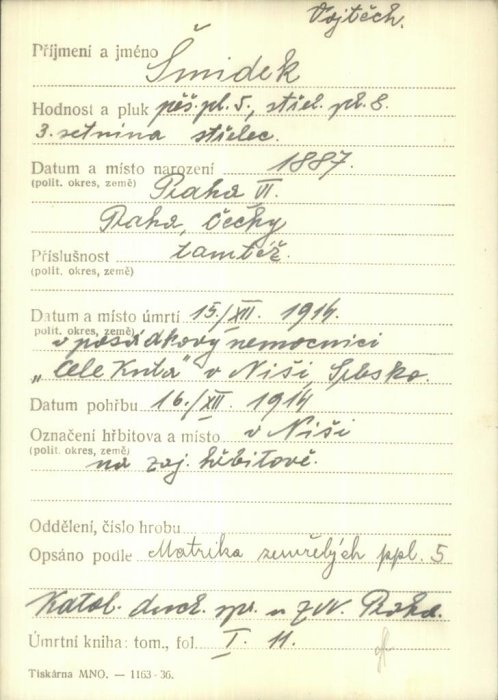 Vojtěch.
Příjmení a jméno Šmidek
Hodnost a pluk pěš. pl. 5., střel. pl. 8.
3. setnina střelec.
Datum a místo narození 1887.
(polit. okres, země) Praha VI.
Praha, Čechy
Příslušnost tamtéž.
(polit. okres, země)
Datum a místo úmrtí 15./XII. 1914.
polit. okres, země)
v posádkový nemocnici
„Cele Kula" v Niši, Srbsko.
Datum pohřbu 16./XII. 1914
Označení hřbitova a místo v Niši
(polit. okres, země)
na zaj. hřbitově.
Oddělení, číslo hrobu
Opsáno podle Matrika zemřelých ppl. 5
Katol. duch. spr. u ZVV. Praha.
Úmrtní kniha: tom., fol. I. 11.
Tiskárna MNO. — 1163-36.